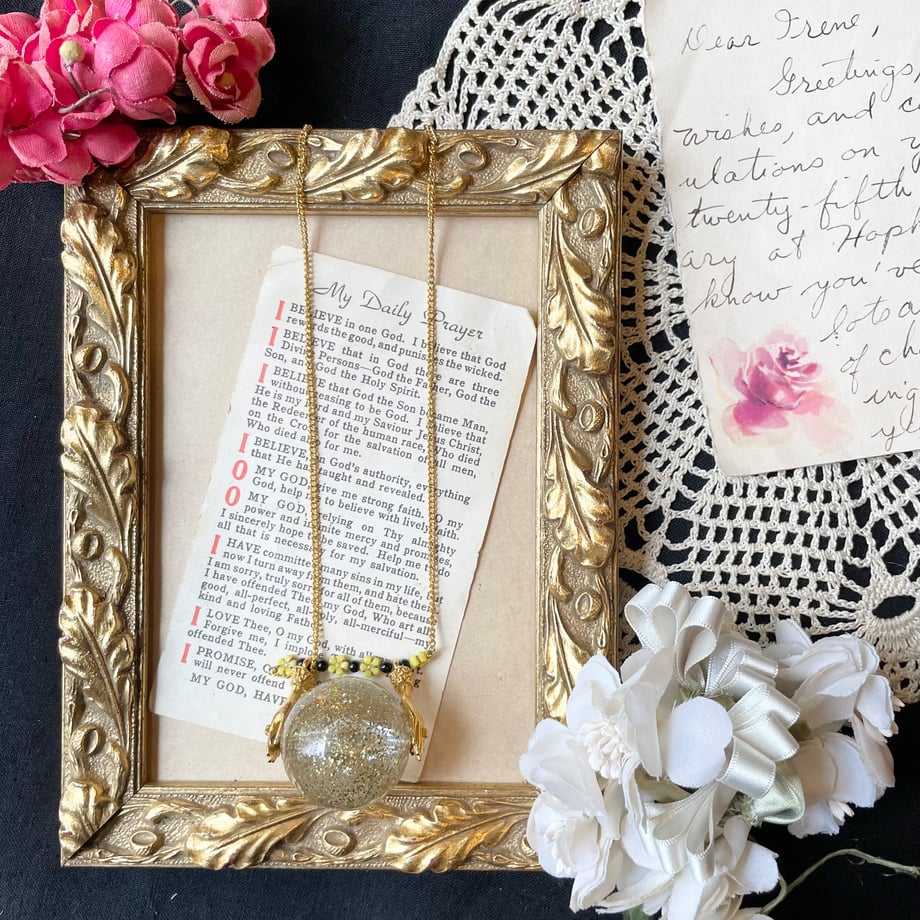 My Daily Prayer
I BELIEVE in one God. I believe that God
rewards the good, and punishes the wicked.
I BELIEVE that in God there are three
Divine Persons—God the Father, God the
Son, and God the Holy Spirit.
I BELIEVE that God the Son became Man,
without ceasing to be God. I believe that
He is my Lord and my Saviour Jesus Christ,
the Redeemer of the human race, Who died
on the Cross for the salvation of all men,
Who died also for me.
I BELIEVE, on God's authority, everything
that He has taught and revealed.
O MY GOD, give me strong faith. O my
God, help me to believe with lively faith.
O MY GOD, relying on Thy almighty
power and infinite mercy and promises,
I sincerely hope to be saved. Help me to do
all that is necessary for my salvation.
I HAVE committed many sins in my life, but
now I turn away from them, and hate them.
I am sorry, truly sorry for all of them, because
I have offended Thee, my God, Who art all-
good, all-perfect, all-holy, all-merciful—my
kind and loving Father.
I LOVE Thee, O my God, with all
Forgive me, I implore
offended Thee.
I PROMISE, O
will never offend
MY GOD, HAVE
Dear Irene,
Greetings,
wishes, and c
ulations on y
twenty-fifth
ary at Hoph
know you've
lots o
of ch
ing
y